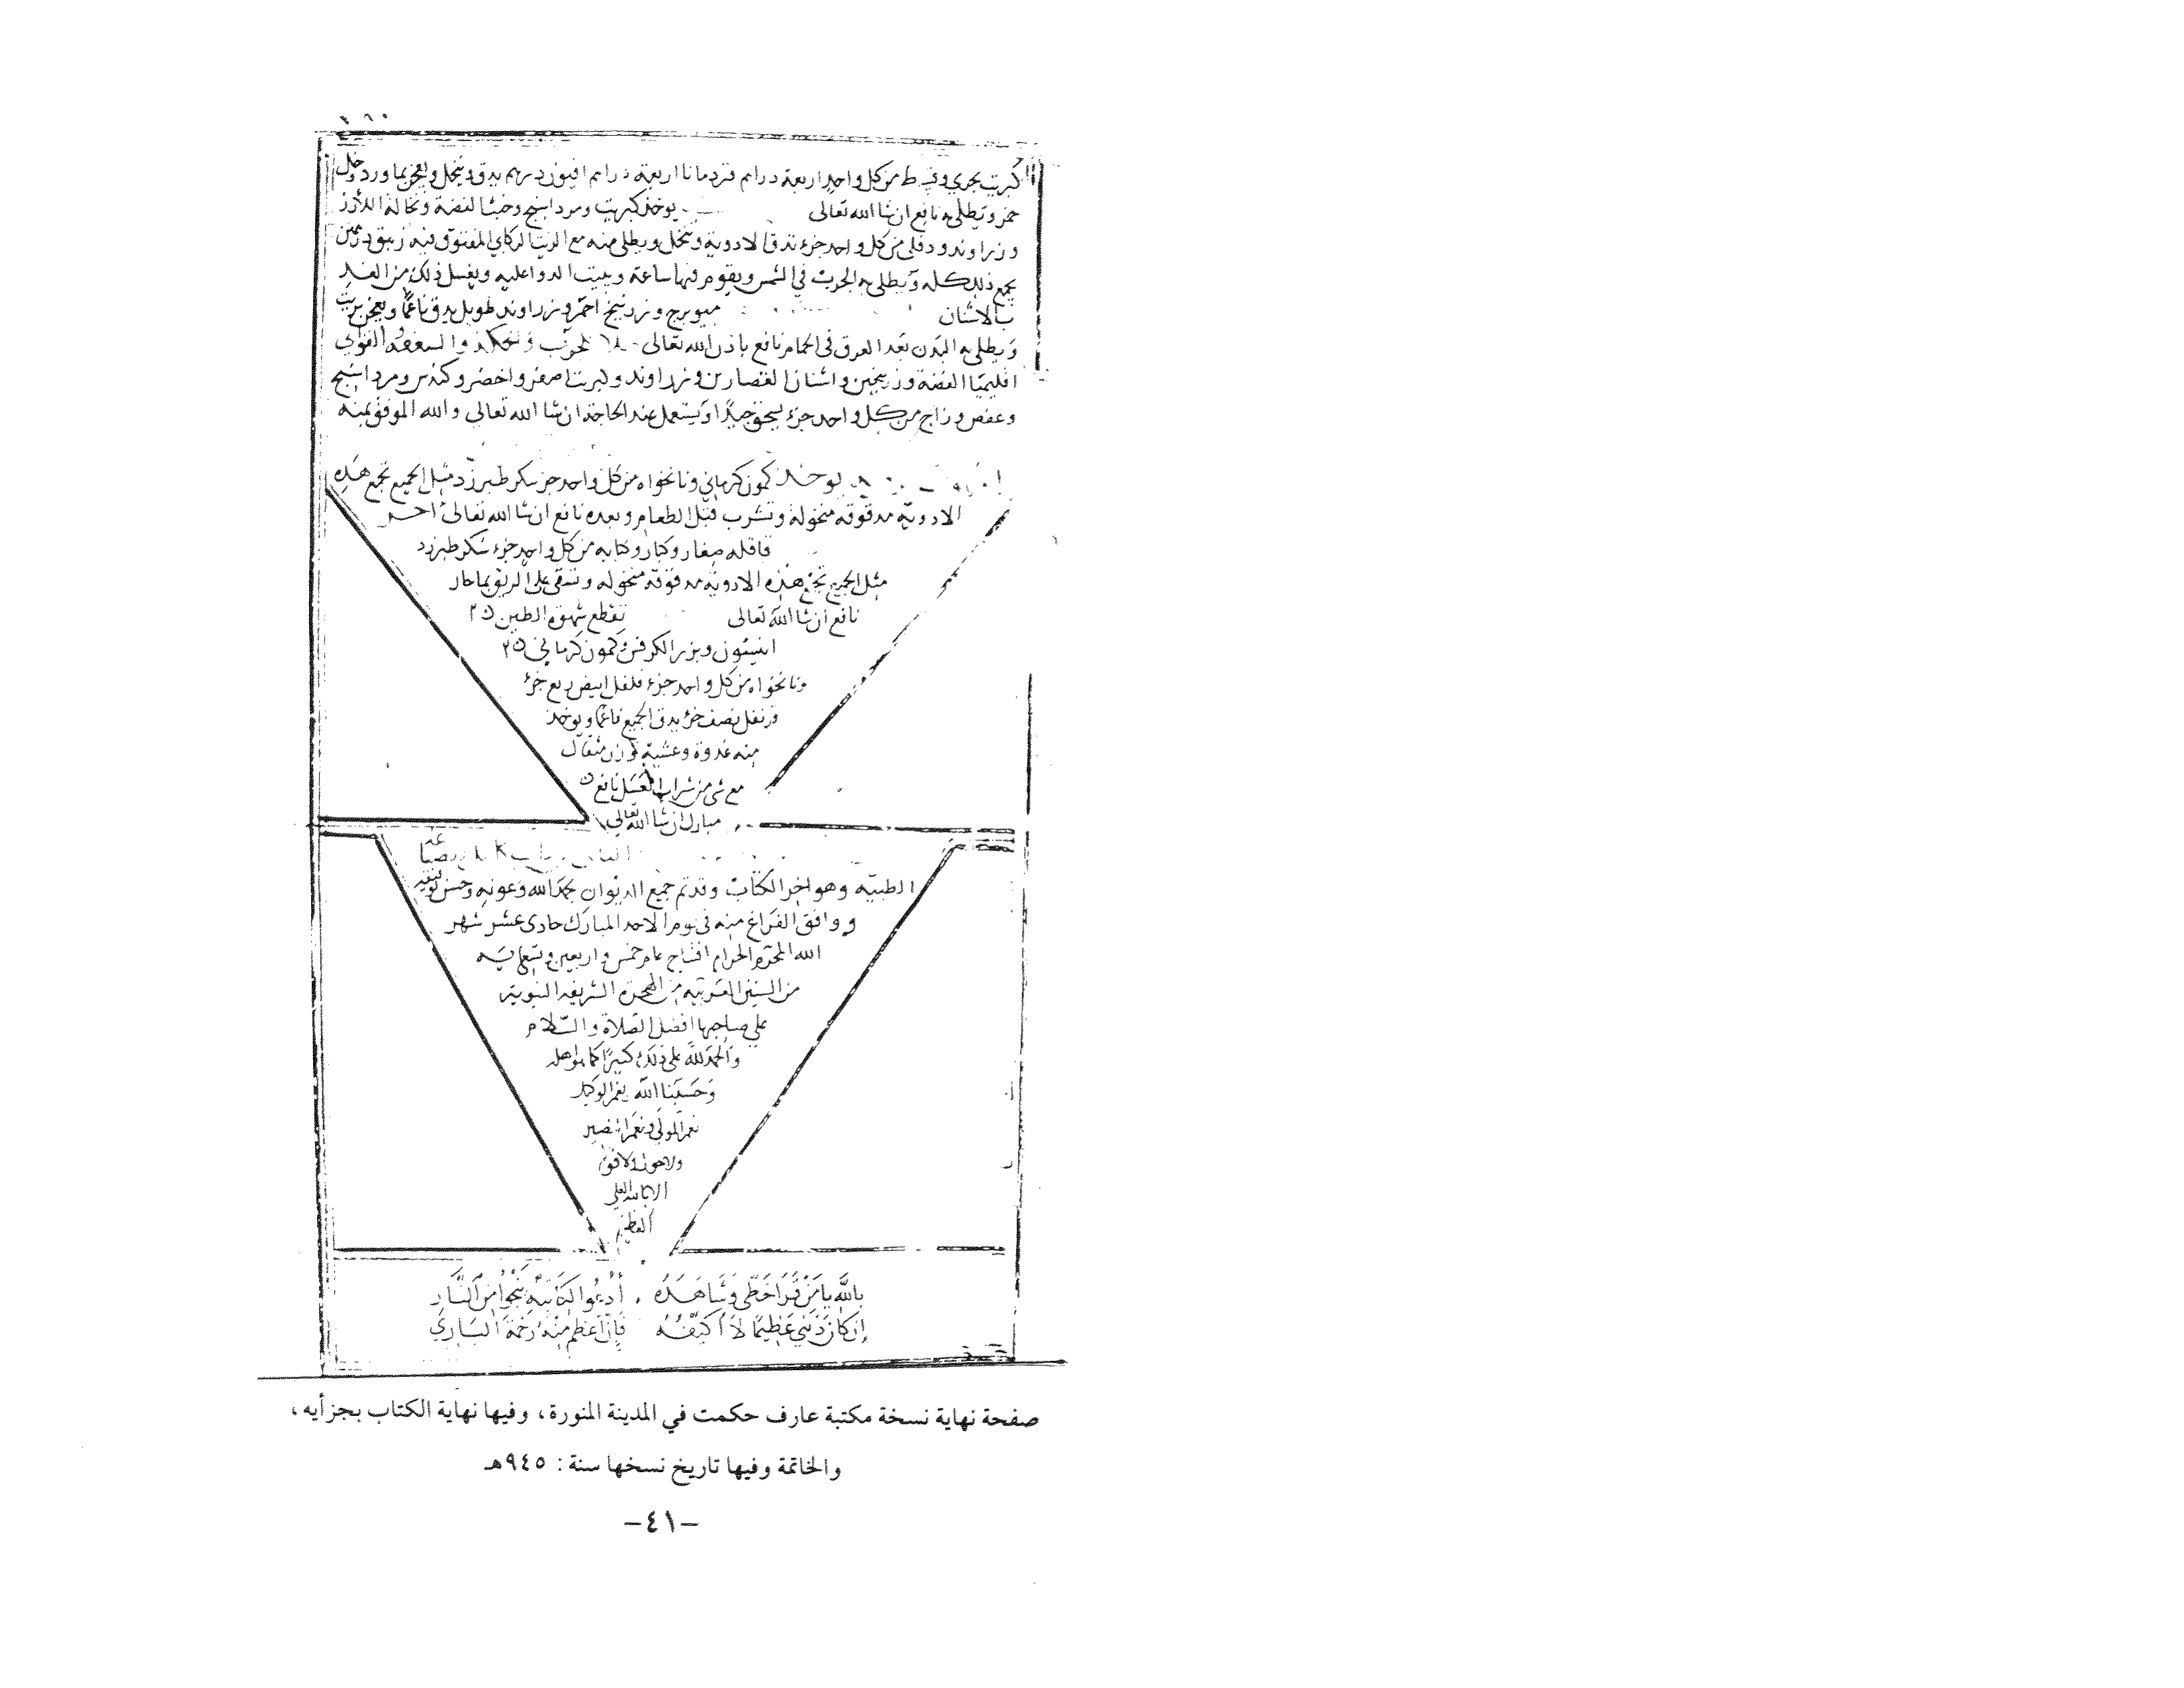 كبريت بحري وقسط من كل واحد اربعة دراهم قردمانا اربعة دراهم افيون درهم يدق وينخل ويعجن بما ورد وخل
خمر ويطلى به نافع ان شا الله تعالى يوخذ كبريت ومرداسنج وخبث الفضة ونخالة الارز
وزراوند ودفلى من كل واحد جزء تدق الادوية وتنخل ويطلى منه مع الزيت الركابي المفتوق فيه زيبق درهمين
يجمع ذلك كله ويطلى به الجرب في الشمس ويقوم فيها ساعة ويبيت الدوا عليه ويغسل ذلك من الغد
بالاشنان ميوبزج وزرنيخ احمر وزراوند طويل يدق ناعما ويعجن بزيت
ويطلى به البدن بعد العرق في الحمام نافع باذن الله تعالى للجرب والحكة والسعفه القوابي
اقليميا الفضة وزرنيخين واشنان القصارين وزراوند وكبريت اصفر واخضر وكندس ومرداسنج
وعفص وزاج من كل واحد جزء يسحق جيدا ويستعمل عند الحاجة ان شا الله تعالى والله الموفق بمنه
يوخذ كمون كرماني ونانخواه من كل واحد جز سكر طبرزد مثل الجميع تجمع هذه
الادوية مدقوقه منخولة وتشرب قبل الطعام وبعده نافع ان شا الله تعالى اخر
قاقله صغار وكبار وكبابه من كل واحد جزء سكر طبرزد
مثل الجميع تجمع هذه الادويه مدقوقه منخوله وتسقى على الريق بما حار
نافع ان شا الله تعالى تقطع شهوة الطين
انيسون وبزر الكرفس وكمون كرماني
ونانخواه من كل واحد جزء فلفل ابيض ربع جزء
قرنفل نصف جزء يدق الجميع ناعما ويوخذ
منه غدوة وعشية وزن مثقال
مع شي من شراب العسل نافع
مبارك ان شا الله تعالى
الطبيه وهو اخر الكتاب وقد تم جميع الديوان بحمد الله وعونه وحسن توفيقه
ووافق الفراغ منه في يوم الاحد المبارك حادى عشر شهر
الله المحرم الحرام افتتاح عام خمس واربعين وتسعمايه
من السنين العربيه من الهجرة الشريفه النبوية
على صاحبها افضل الصلاة والسلام
والحمد لله على ذلك كثيرا كما هو اهله
وحسبنا الله ونعم الوكيل
نعم المولى ونعم النصير
ولا حول ولا قوة
الا بالله العلي
العظيم
بالله يا من قرا خطى وشاهده ادعوا لكاتبه ينجوا من النار
إن كان ذنبي عظيما لا اكيفه فإن اعظم منه رحمة الباري
صفحة نهاية نسخة مكتبة عارف حكمت في المدينة المنورة، وفيها نهاية الكتاب بجزأيه،
والخاتمة وفيها تاريخ نسخها سنة: ٩٤٥هـ
-٤١-